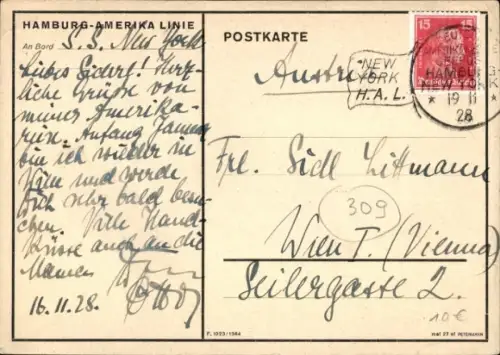 HAMBURG-AMERIKA LINIE
An Bord S.S. New York
Liebes Siderl! Herz-
liche Grüße von
meiner Amerika-
reise. Anfang Januar
bin ich wieder in
Wien und werde
Dich sehr bald besu-
chen. Viele Hand-
küsse auch an die
Mamen
16.11.28.
POSTKARTE
Austria
NEW
YORK
H.A.L.
15 15
HAMBURG
NEW YORK
* 19 11 *
28
Frl. Sidl Littmann
309
Wien I. (Vienna)
Seilergasse 2.
10€